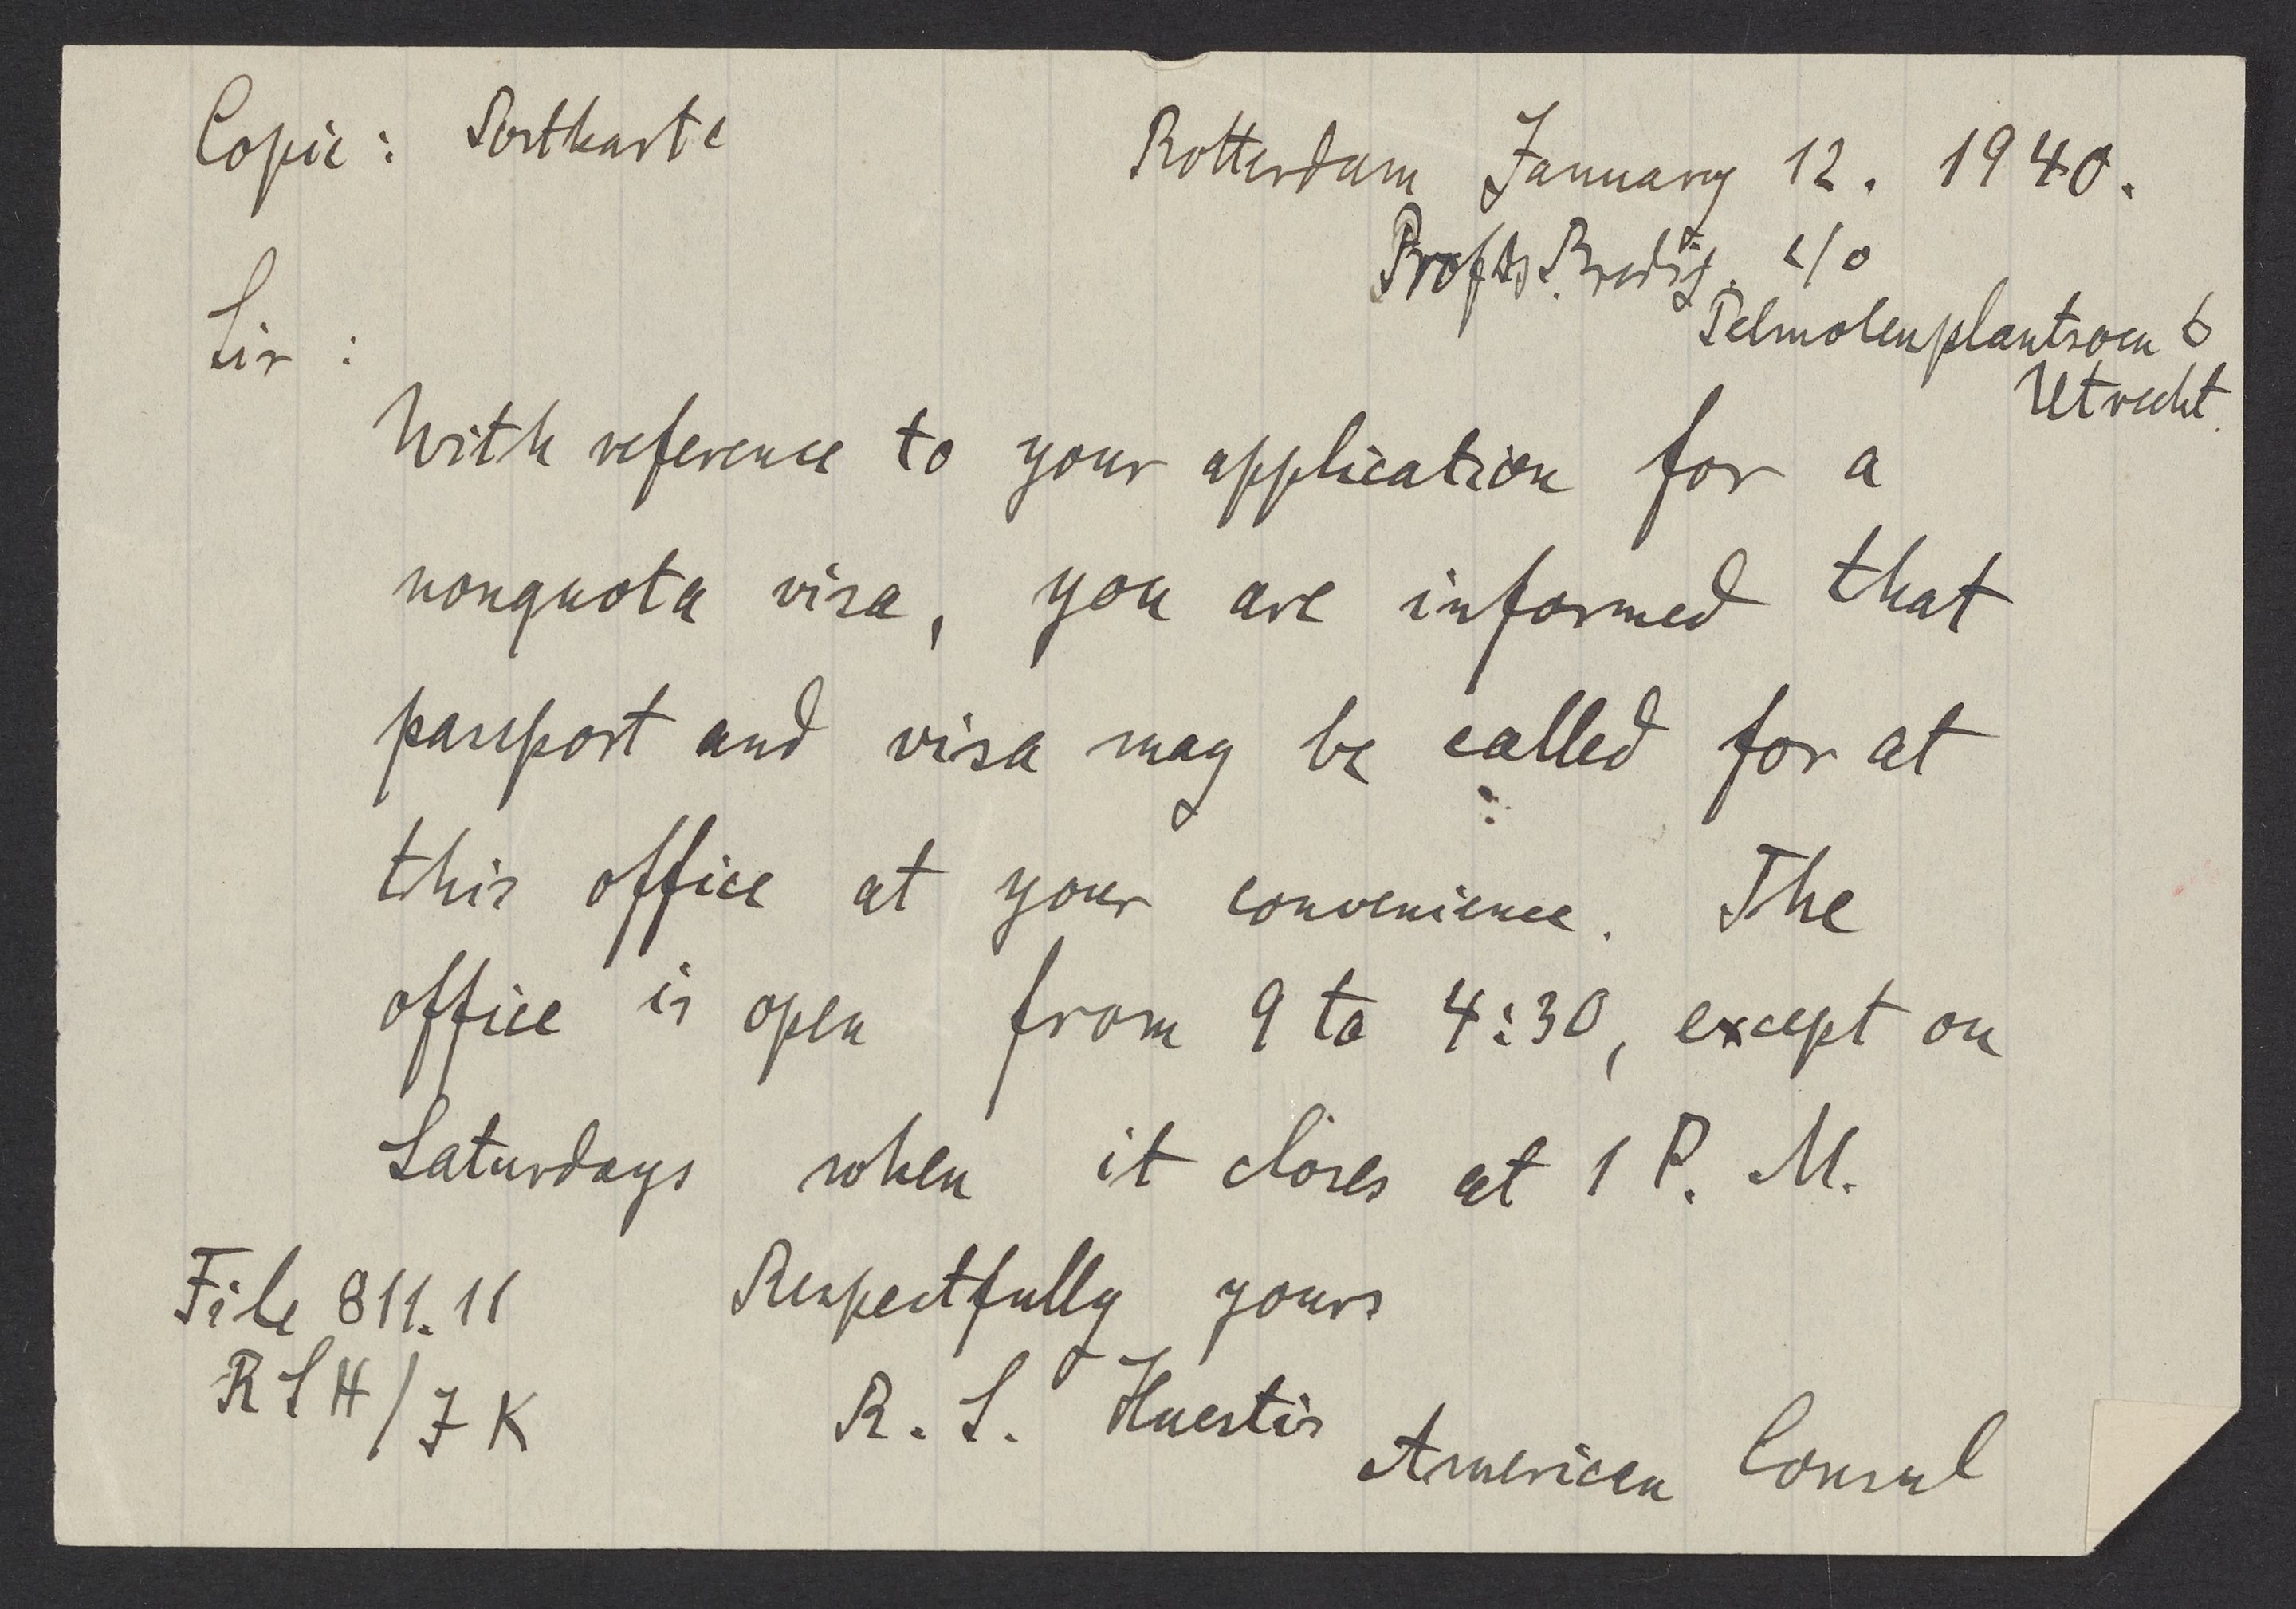 Copie : Postkarte
Rotterdam January 12. 1940.
Prof. Bredig. c/o
Pelmolenplantsoen 6
Utrecht.
Sir :
With reference to your application for a
nonquota visa, you are informed that
passport and visa may be called for at
this office at your convenience. The
office is open from 9 to 4:30, except on
Saturdays when it closes at 1 P. M.
File 811.11
Respectfully yours
RSH/JK
R. S. Huestis
American Consul